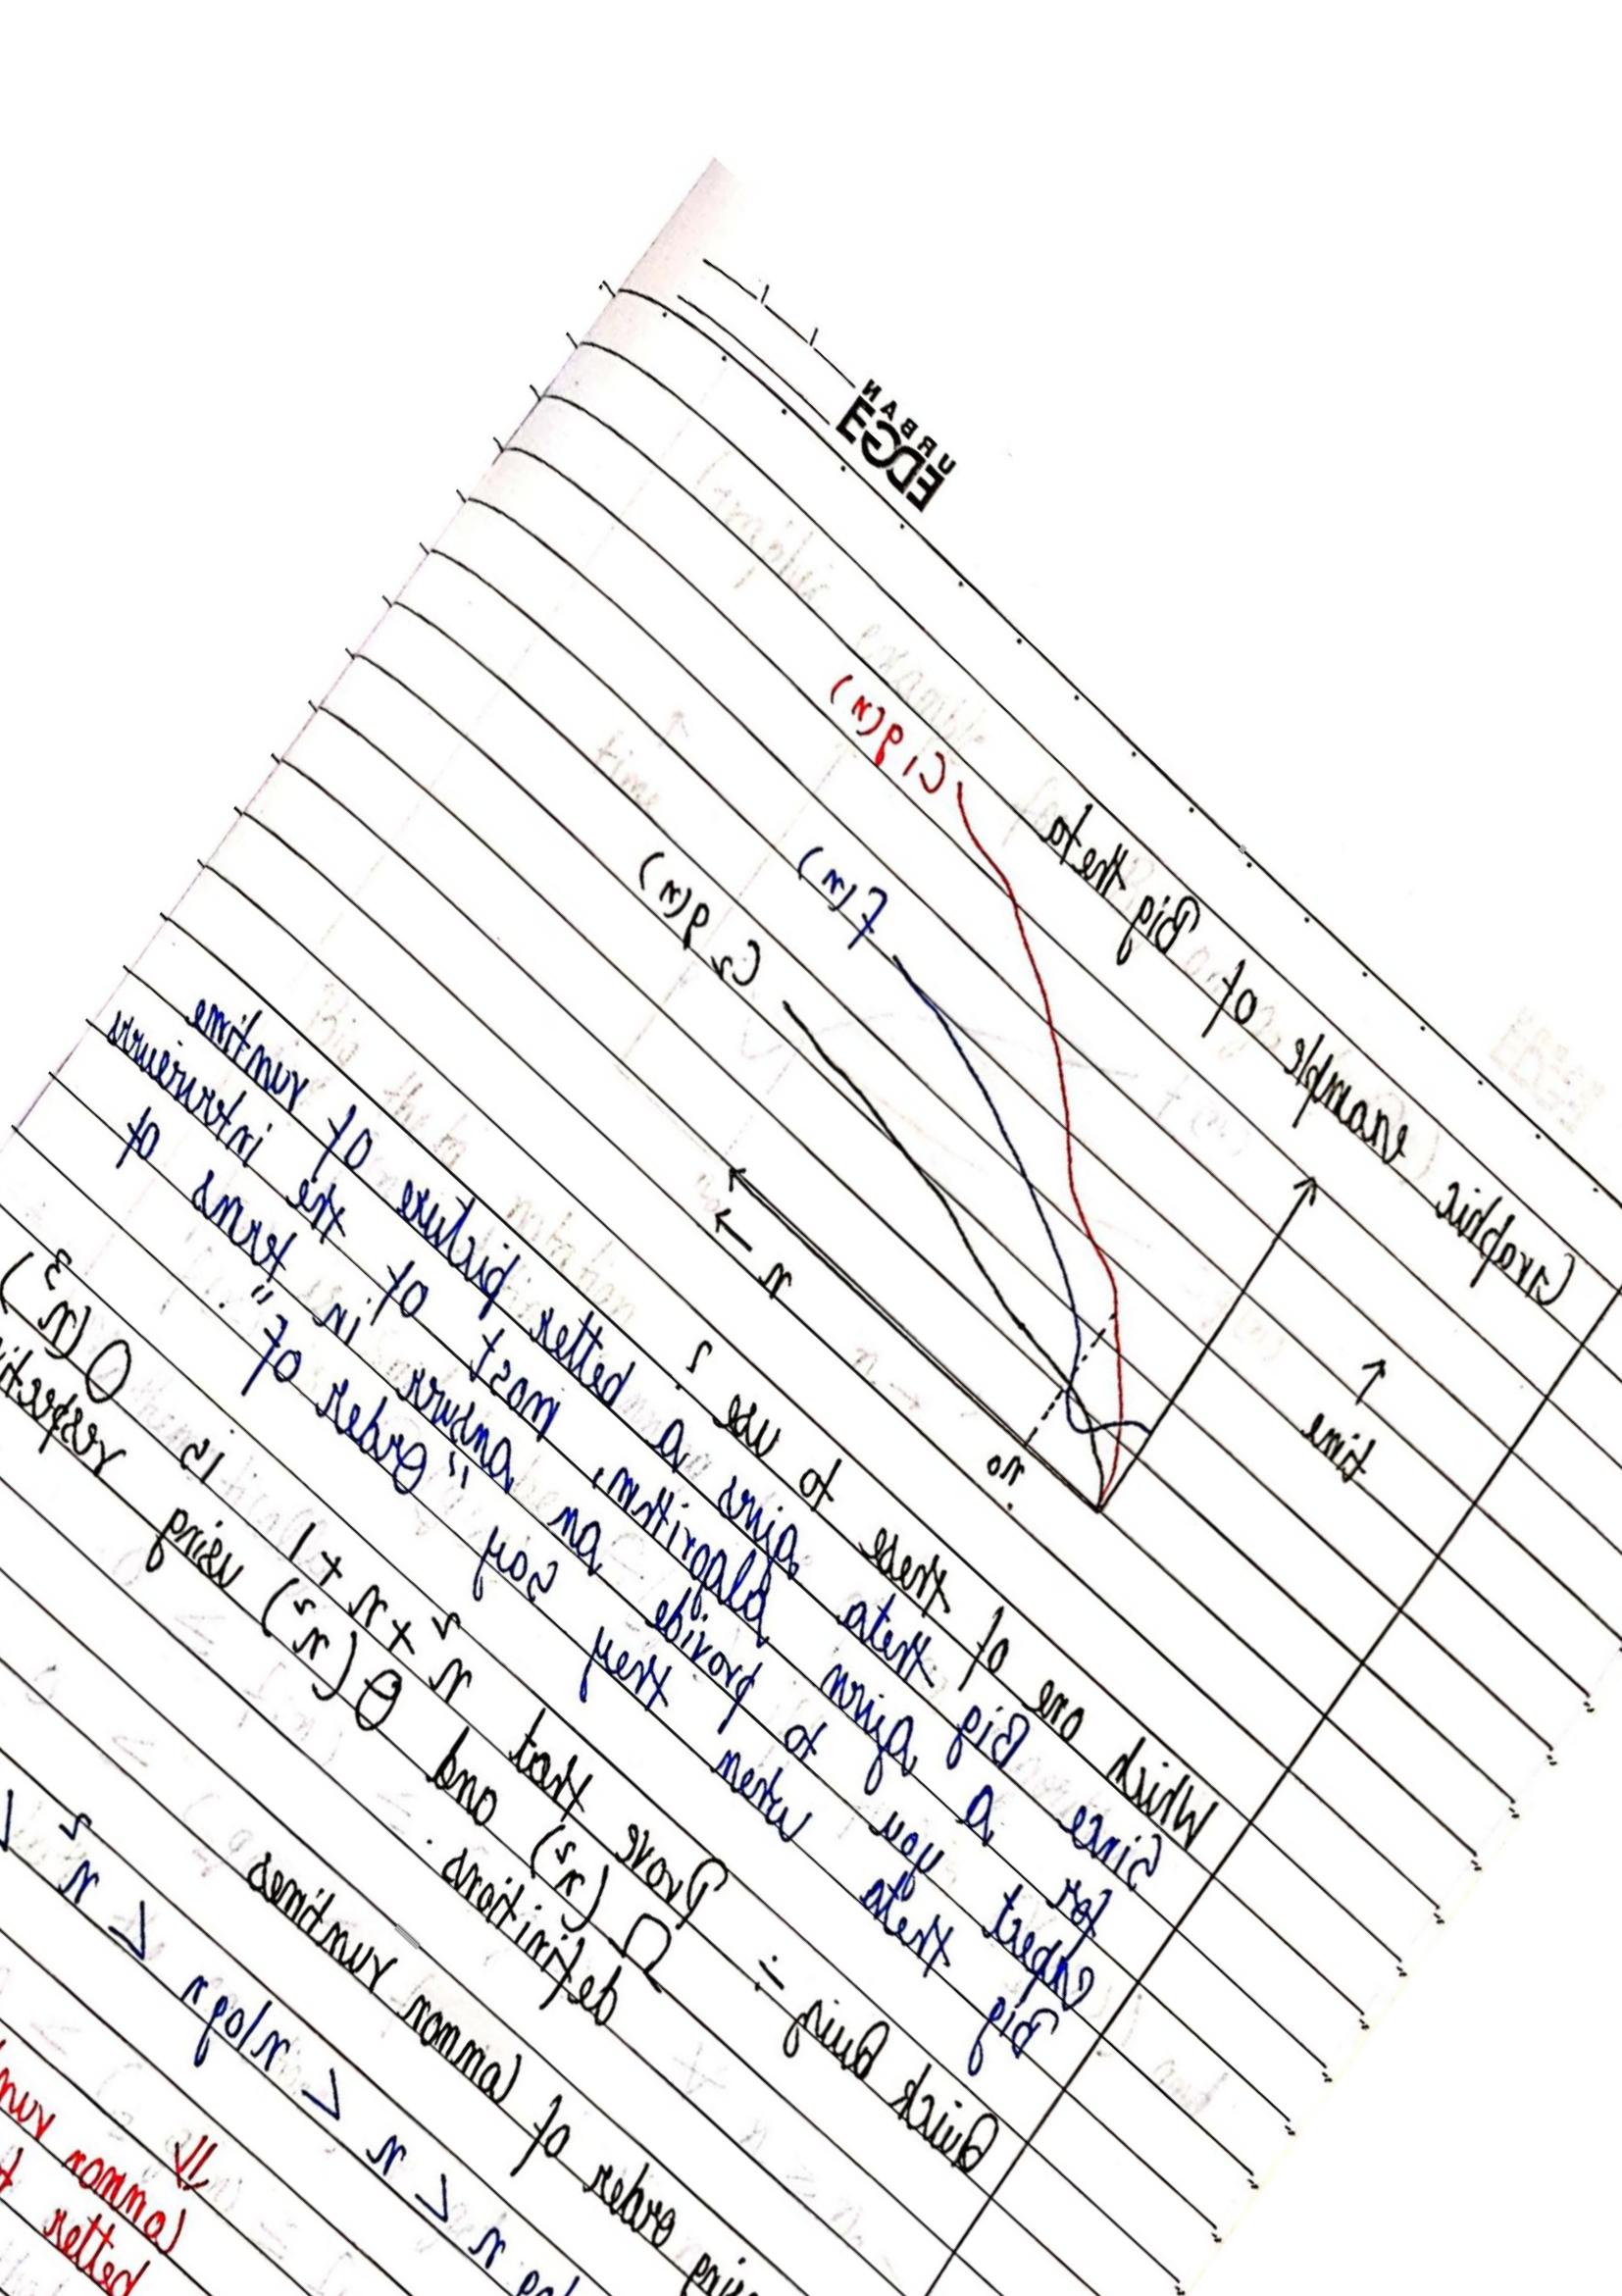 URBAN
EDGE
Graphic example of Big theta
time →
C₁ g(n)
f(n)
C₂ g(n)
n₀
n →
Which one of these to use ?
Since Big theta gives a better picture of runtime
for a given algorithm, most of the interviewers
expect you to provide an answer in terms of
Big theta when they say "Order of"
Quick Quiz :- Prove that n² + n + 1 is O(n³)
Ω(n²) and Θ(n²) using
definitions.
order of common runtimes
log n < n < nlogn < n² <
common
better